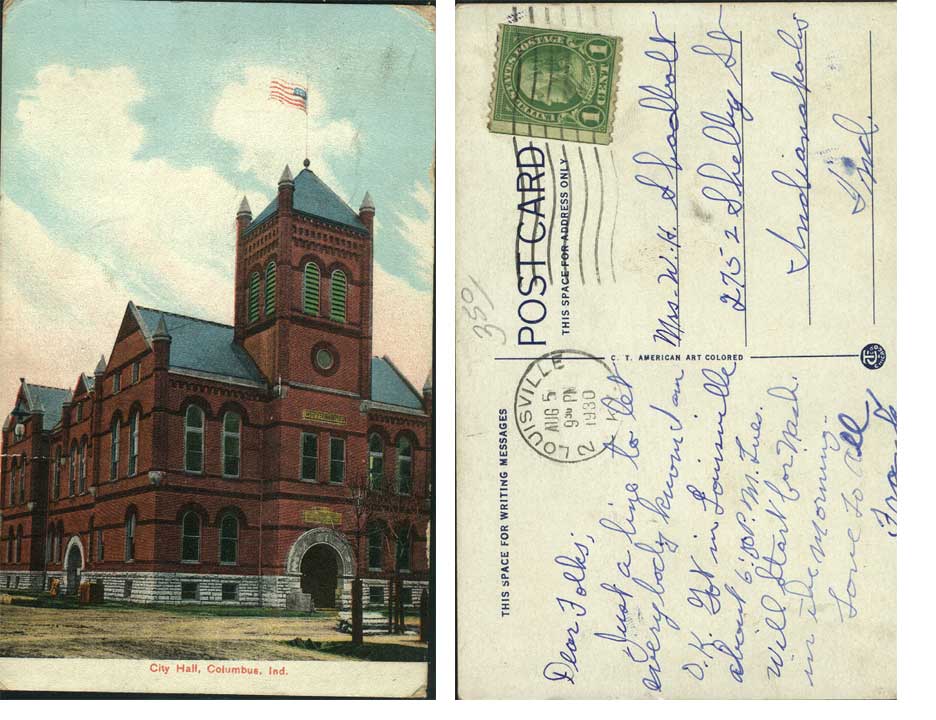 City Hall, Columbus, Ind.
UNITED STATES POSTAGE
1 CENT 1
POST CARD
THIS SPACE FOR ADDRESS ONLY
Mrs. W. H. Shadbolt
2752 Shelby St
Indianapolis
Ind.
350
C. T. AMERICAN ART COLORED
LOUISVILLE
AUG 5
9 30 PM
1930
2 KY
THIS SPACE FOR WRITING MESSAGES
Dear Folks;
Just a line to let
everybody know I am
O.K. Got in Louisville
about 6:00 P.M. Tues.
Will start for Nash.
in the morning.
Love to All
Frank